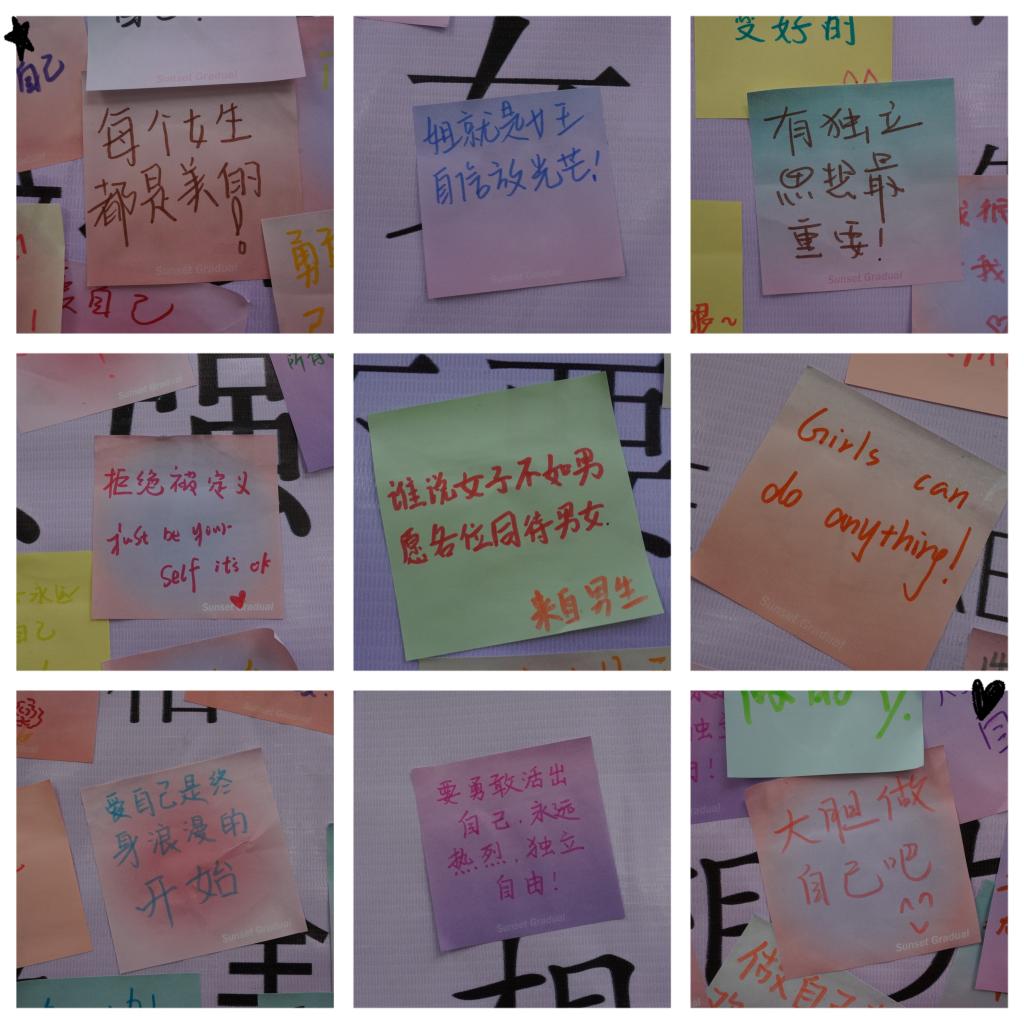 自己!
自己
Sunset Gradual
每个女生
都是美的
!
Sunset Gradual
爱自己
勇
己
!
女
姐就是女王
自信放光芒!
Sunset Gradual
爱好的
^^
有独立
思想最
重要!
Sunset Gradual
我很
我
~
!
Sunset Gradual
所有
拒绝被定义
just be your-
self it's ok
Sunset Gradual
永远
自己
谁说女子不如男
愿各位同待男女.
来自男生
Girls can
do anything!
Sunset Gradual
Sunset Gradual
爱自己是终
身浪漫的
开始
Sunset Gradual
要勇敢活出
自己,永远
热烈,独立
自由!
Sunset Gradual
独立
由!
大胆做
自己吧
^^
Sunset Gradual
做自己